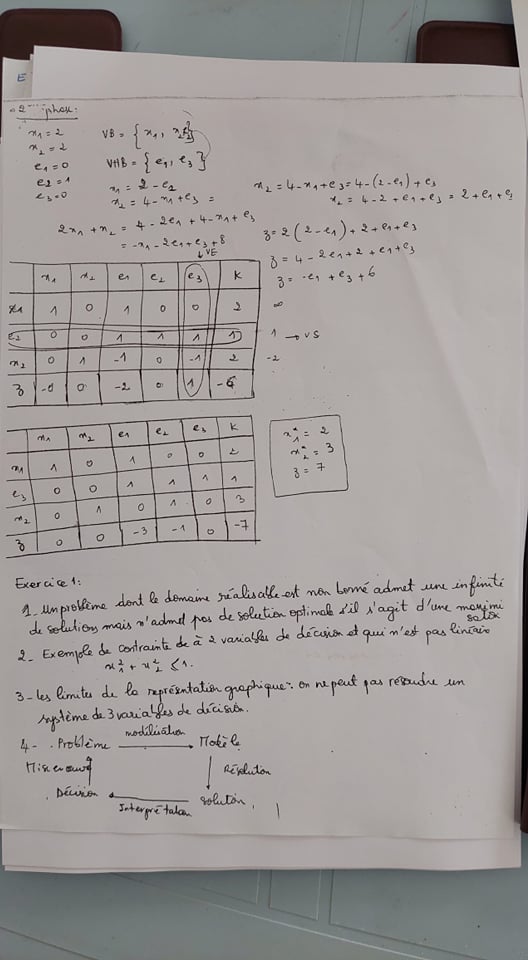 E
2ième phase:
x1 = 2
x2 = 2
e1 = 0
e2 = 1
e3 = 0
VB = { x1, x2 }
VHB = { e1, e3 }
x1 = 2 - e2
x2 = 4 - x1 + e3 =
2x1 + x2 = 4 - 2e1 + 4 - x1 + e3
= -x1 - 2e1 + e3 + 8
x2 = 4 - x1 + e3 = 4 - (2 - e1) + e3
x2 = 4 - 2 + e1 + e3 = 2 + e1 + e3
z = 2(2 - e1) + 2 + e1 + e3
z = 4 - 2e1 + 2 + e1 + e3
z = -e1 + e3 + 6
↓ VE
x1 x2 e1 e2 e3 K
x1 1 0 1 0 0 2 ∞
e2 0 0 1 1 1 1 1 → VS
x2 0 1 -1 0 -1 2 -2
z -0 0 -2 0 1 -6
x1 x2 e1 e2 e3 K
x1 1 0 1 0 0 2
e3 0 0 1 1 1 1
x2 0 1 0 1 0 3
z 0 0 -3 -1 0 -7
x1* = 2
x2* = 3
z = 7
Exercice 1:
1- Un problème dont le domaine réalisable est non borné admet une infinité
de solutions mais n'admet pas de solution optimale s'il s'agit d'une maximi
sation
2- Exemple de contrainte de à 2 variables de décision et qui n'est pas linéaire
x1² + x2² ≤ 1.
3- Les limites de la représentation graphique: on ne peut pas résoudre un
système de 3 variables de décision.
4- . Problème modélisation → Modèle
Mise en œuvre ↑ ↓ Résolution
. Décision ← Interprétation solution.